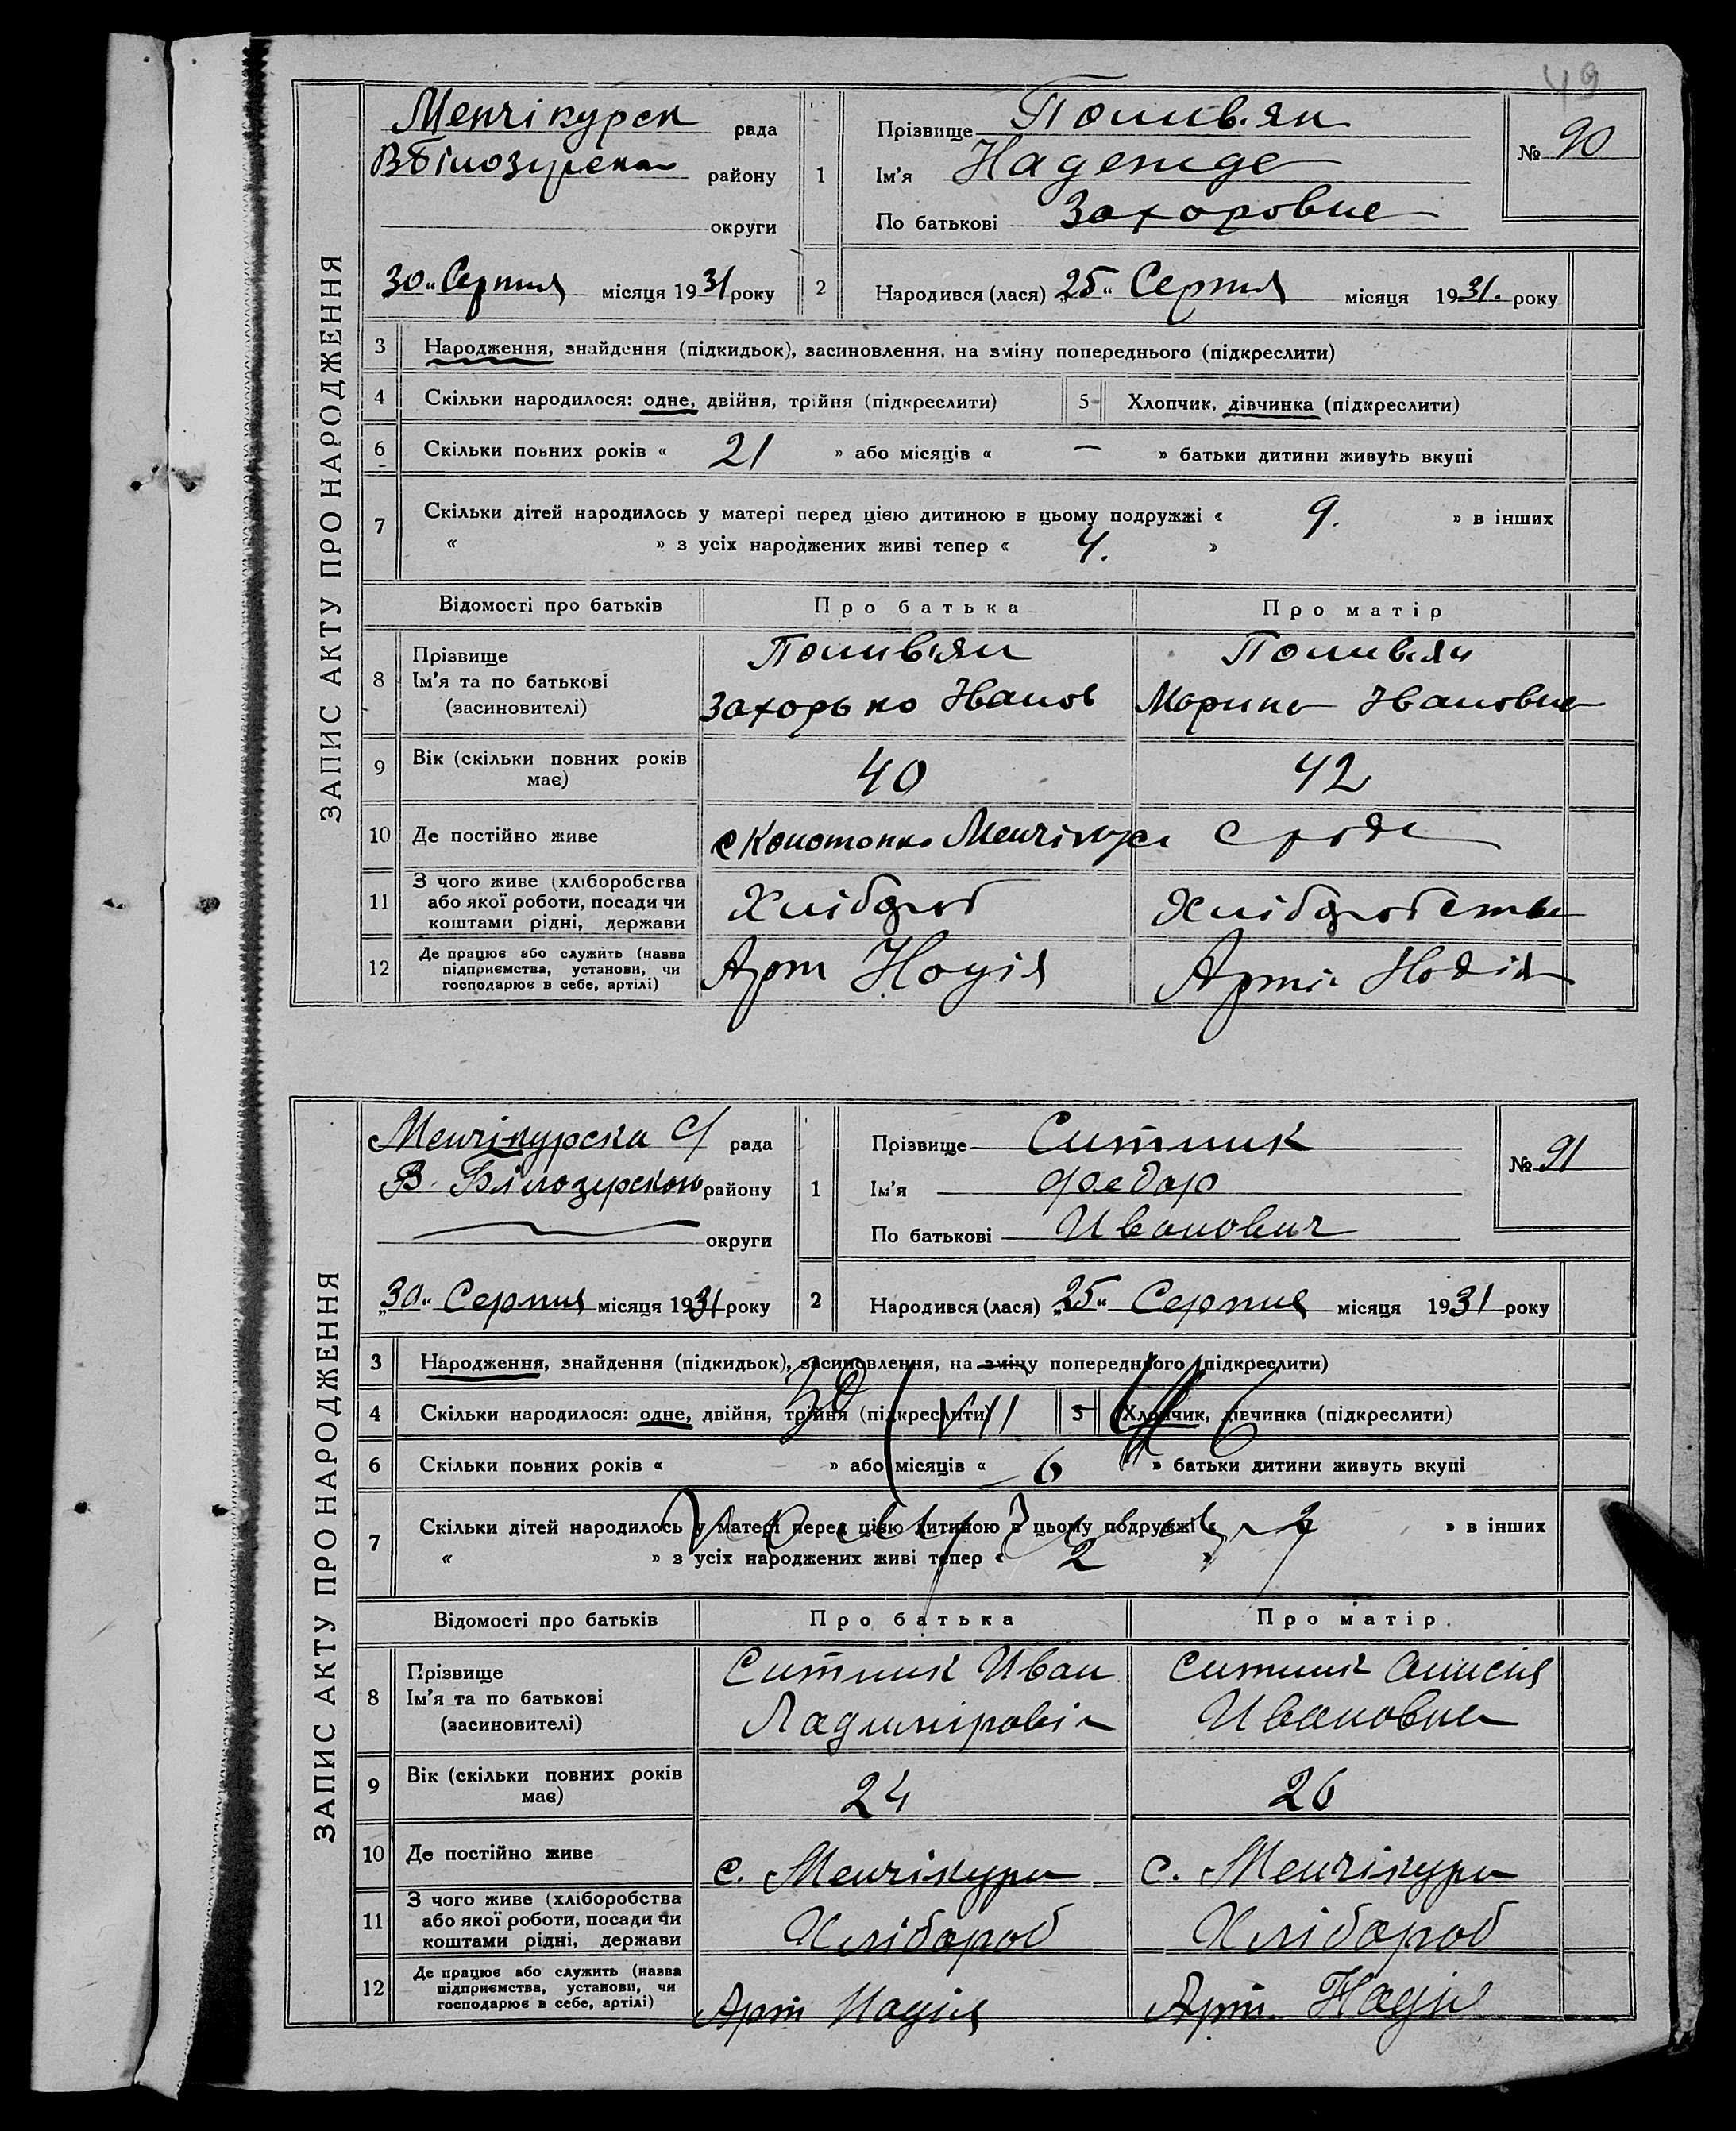 49
ЗАПИС АКТУ ПРО НАРОДЖЕННЯ
Менчікурск рада
В Білозерска району
округи
30 „ Серпня місяця 1931 року
1
Прізвище
Ім'я Надежде
По батькові Захоровне
№ 90
2 Народився (лася) „25“ Серпня місяця 1931. року
3 Народження, знайдення (підкидьок), засиновлення, на зміну попереднього (підкреслити)
4 Скільки народилося: одне, двійня, трійня (підкреслити) 5 Хлопчик, дівчинка (підкреслити)
6 Скільки повних років « 21 » або місяців « — » батьки дитини живуть вкупі
7 Скільки дітей народилось у матері перед цією дитиною в цьому подружжі « 9. » в інших
« » з усіх народжених живі тепер « 4. »
Відомості про батьків Про батька Про матір
8 Прізвище
Ім'я та по батькові Захорько Иванов Марина Ивановне
(засиновителі)
9 Вік (скільки повних років має) 40 42
10 Де постійно живе Менчікур
11 З чого живе (хліборобства або якої роботи, посади чи коштами рідні, держави Хлібороб Хліборобства
12 Де працює або служить (назва підприємства, установи, чи господарює в себе, артілі) Арт Надія Арті Надія
ЗАПИС АКТУ ПРО НАРОДЖЕННЯ
Менчікурска С/ рада
В. Білозерского району
округи
„30“ Серпня місяця 1931 року
1
Прізвище Ситник
Ім'я Федор
По батькові Иванович
№ 91
2 Народився (лася) „25“ Серпня місяця 1931 року
3 Народження, знайдення (підкидьок), засиновлення, на зміну попереднього (підкреслити)
4 Скільки народилося: одне, двійня, трійня (підкреслити) 5 Хлопчик, дівчинка (підкреслити)
6 Скільки повних років « » або місяців « 6 » батьки дитини живуть вкупі
7 Скільки дітей народилось у матері перед цією дитиною в цьому подружжі « » в інших
« » з усіх народжених живі тепер « 2 »
Відомості про батьків Про батька Про матір.
8 Прізвище Ситник Иван Ситник Анисия
Ім'я та по батькові Ивановна
(засиновителі)
9 Вік (скільки повних років має) 24 26
10 Де постійно живе с. Менчікури с. Менчікури
11 З чого живе (хліборобства або якої роботи, посади чи коштами рідні, держави Хлібороб Хлібороб
12 Де працює або служить (назва підприємства, установи, чи господарює в себе, артілі) Арт Надія Арт. Надія